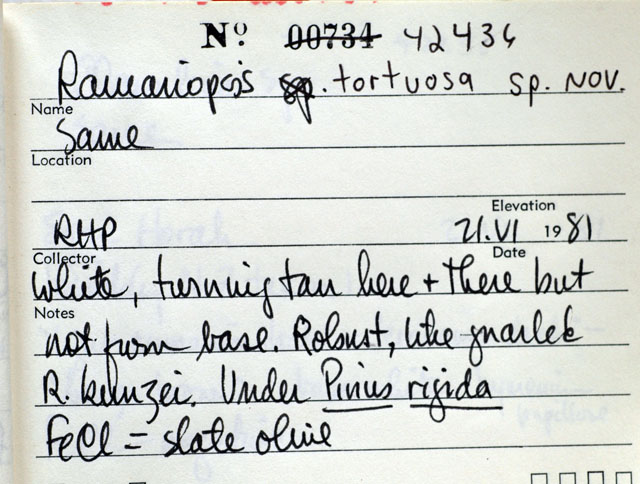 Nº 00734 42436
Ramariopsis sp. tortuosa sp. NOV.
Name
Same
Location
RHP 21.VI 1981
Elevation
Collector Date
white, turning tan here + there but
Notes
not from base. Robust, like gnarled
R. kunzei. Under Pinius rigida
FeCl = slate olive